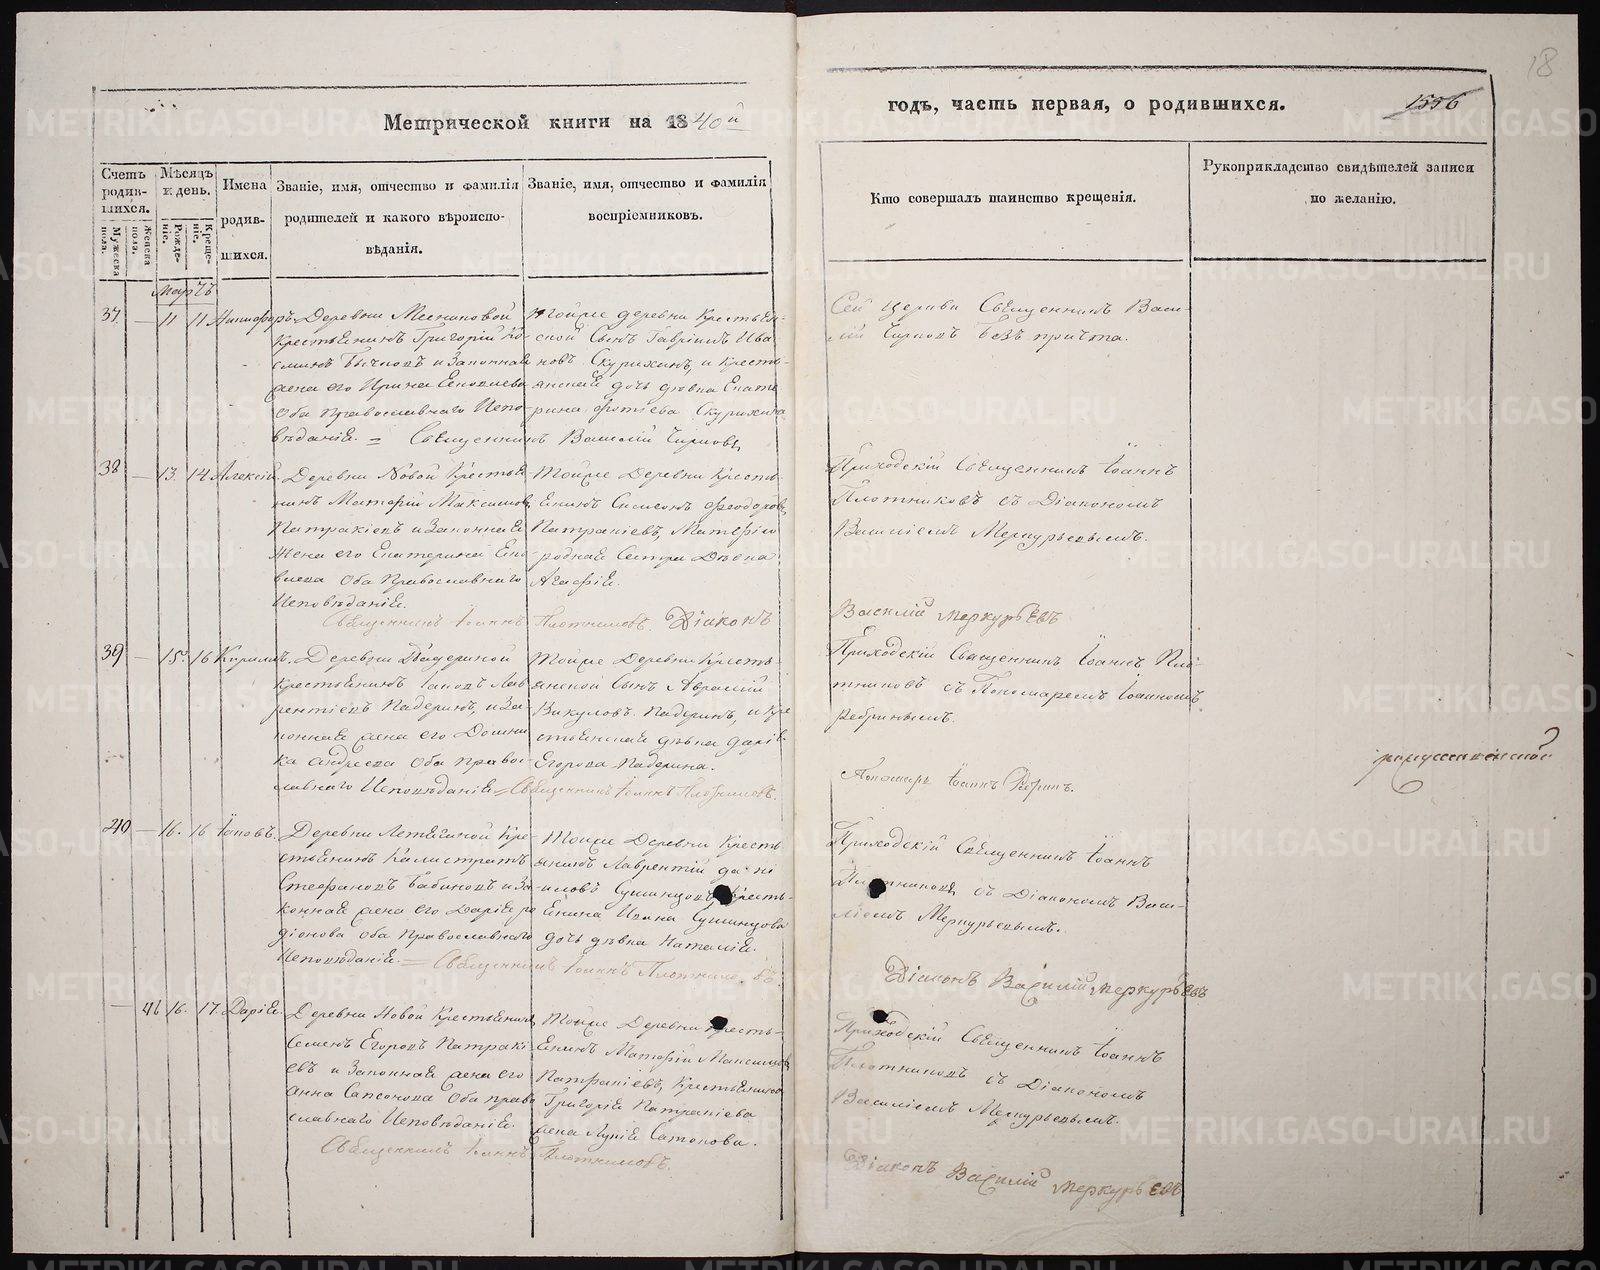 18
Метрической книги на 1840й
годъ, часть первая, о родившихся.
1556
Счетъ родив-шихся.
Мужеска пола.
Женска пола.
Мѣсяцъ и день.
Рожде-ніе.
Креще-ніе.
Имена родив-шихся.
Званіе, имя, отчество и фамилія
родителей и какого вѣроиспо-
вѣданія.
Званіе, имя, отчество и фамилія
воспріемниковъ.
Кто совершалъ таинство крещенія.
Рукоприкладство свидѣтелей записи
по желанію.
Мартъ
37 — 11 11 Никифоръ.
Деревни
Крестьянинъ Григорій
и Законная
жена его Ирина
Оба Православнаго Испо-
вѣданія. = Священникъ Василій
Тойже деревни Крестьян-
ской Сынъ Гавріилъ Ива-
новъ Скурихинъ, и Кресть-
янская дочь дѣвка Екате-
рина Фотіева Скурихина
Сей церкви Священникъ Васи-
лій безъ причта.
38 — 13. 14 Алексій.
Деревни Новой Крестья-
нинъ Матфій Максимовъ
Патракіевъ и Законная
Жена его Екатерина
Оба Православнаго
Исповѣданія.
Священникъ Іоаннъ Плотниковъ. Діаконъ
Тойже Деревни Кресть-
янинъ Симеонъ Феодоровъ
Патракіевъ, Матфію
родная Сестра Дѣвка
Агафія.
Приходскій Священникъ Іоаннъ
Плотниковъ съ Діакономъ
Василіемъ Меркурьевымъ.
Василій Меркурьевъ
39 — 15. 16 Кириллъ.
Деревни Падериной
Крестьянинъ Іаковъ Лав-
рентіевъ Падеринъ, и За-
конная жена его Домни-
ка Андреева Оба Право-
славнаго Исповѣданія = Священникъ Іоаннъ Плотниковъ.
Тойже Деревни Кресть-
янской Сынъ Аврамій
Викуловъ Падеринъ, и Кре-
стьянская дѣвка Дарія
Егорова Падерина.
Приходскій Священникъ Іоаннъ Пло-
тниковъ съ Пономаремъ Іоанномъ
Ребринымъ.
Пономарь Іоаннъ Ребринъ.
40 — 16. 16 Іаковъ.
Деревни Кре-
стьянинъ Калистратъ
Стефановъ Бабиновъ и За-
конная жена его Дарія Ро-
діонова оба Православнаго
Исповѣданія. = Священникъ Іоаннъ Плотниковъ.
Тойже Деревни Кресть-
янинъ Лаврентій Дані-
иловъ Кресть-
янина Ивана
дочь дѣвка Наталія.
Приходскій Священникъ Іоаннъ
Плотниковъ съ Діакономъ Васи-
ліемъ Меркурьевымъ.
Діаконъ Василій Меркурьевъ
— 41 16. 17. Дарія.
Деревни Новой Крестьянинъ
Семенъ Егоровъ Патракі-
евъ и Законная жена его
Анна Сапсонова Оба Право-
славнаго Исповѣданія.
Священникъ Іоаннъ Плотниковъ.
Тойже Деревни Кресть-
янинъ Матфій Максимовъ
Патракіевъ, Крестьянина
Григорія Патракіева
жена Лукія
Приходскій Священникъ Іоаннъ
Плотниковъ съ Діакономъ
Василіемъ Меркурьевымъ.
Діаконъ Василій Меркурьевъ
METRIKI.GASO-URAL.RU